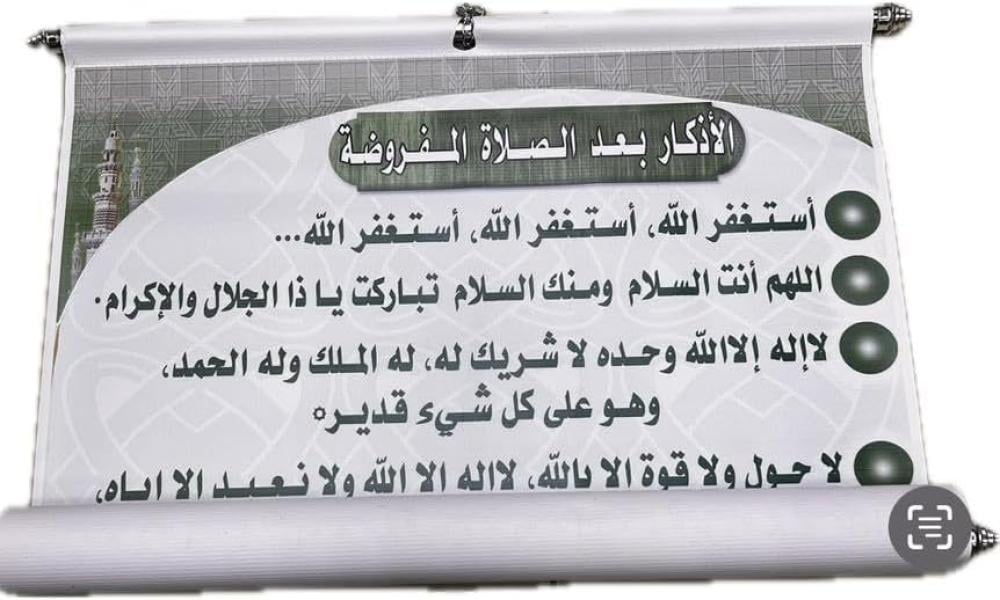 الأذكار بعد الصلاة المفروضة
أستغفر الله، أستغفر الله، أستغفر الله...
اللهم أنت السلام ومنك السلام تباركت يا ذا الجلال والإكرام.
لاإله إلاالله وحده لا شريك له، له الملك وله الحمد،
وهو على كل شيء قدير
لا حول ولا قوة الا بالله، لااله الا الله ولا نعبد الا اياه،